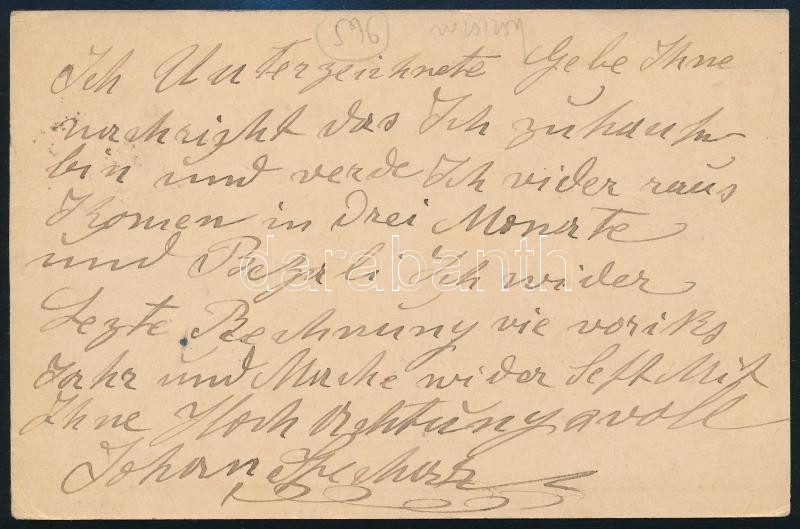 Ich Unterzeichnete Gebe Ihne
nachricht das Ich zuhause
bin und verde Ich vider raus
Komen in Drei Monate
und Bezali Ich wider
Lezte Rechnung vie voriks
Jahr und Mache wider Seft Mit
Ihne Hochachtungsvoll
Johan
darabanth